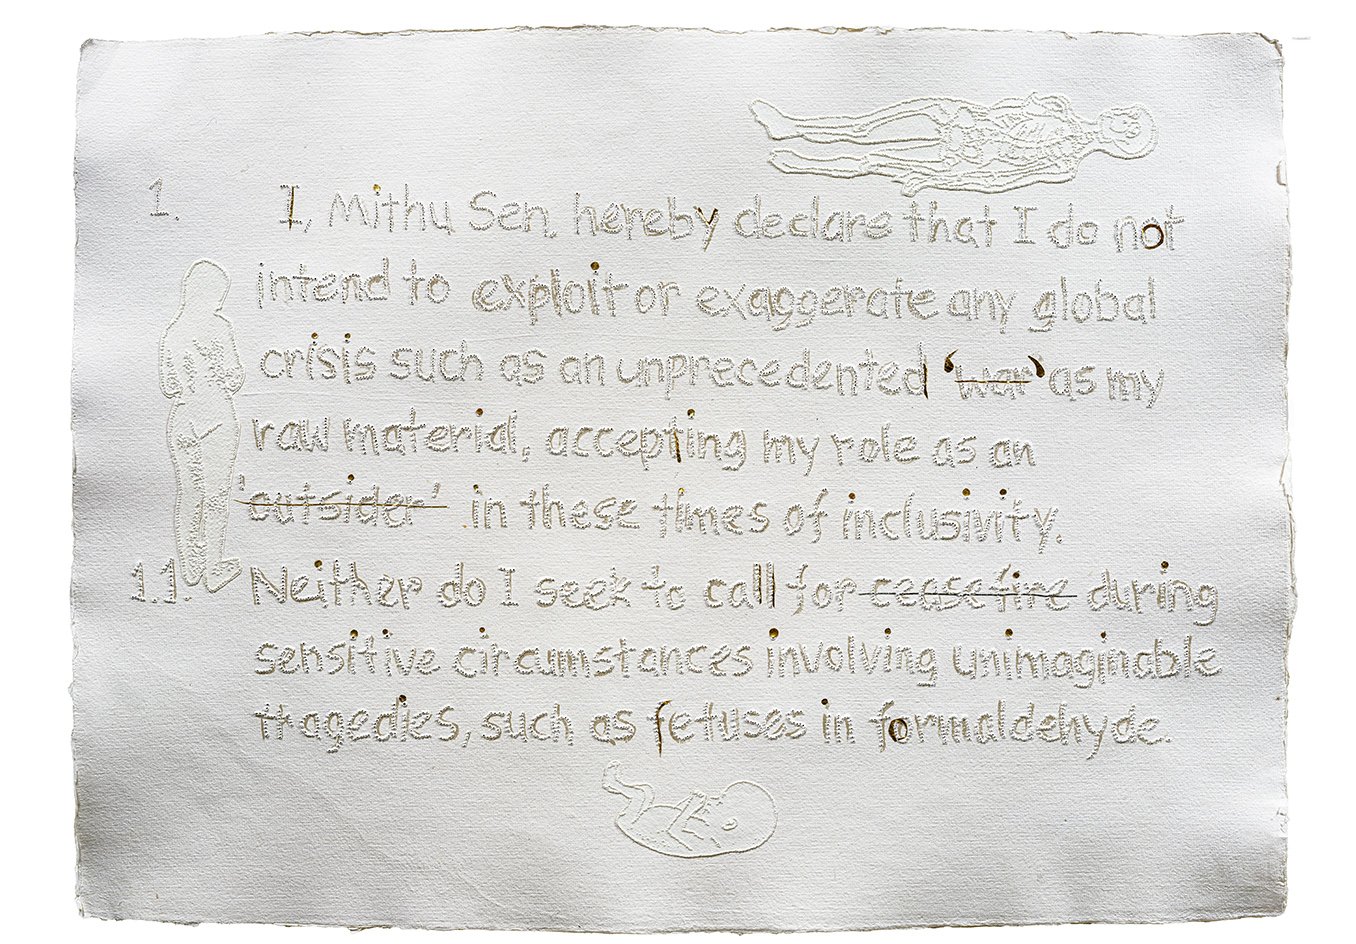 1. I, Mithu Sen, hereby declare that I do not
intend to exploit or exaggerate any global
crisis such as an unprecedented ‘war’ as my
raw material, accepting my role as an
'outsider' in these times of inclusivity.
1.1. Neither do I seek to call for ceasefire during
sensitive circumstances involving unimaginable
tragedies, such as fetuses in formaldehyde.